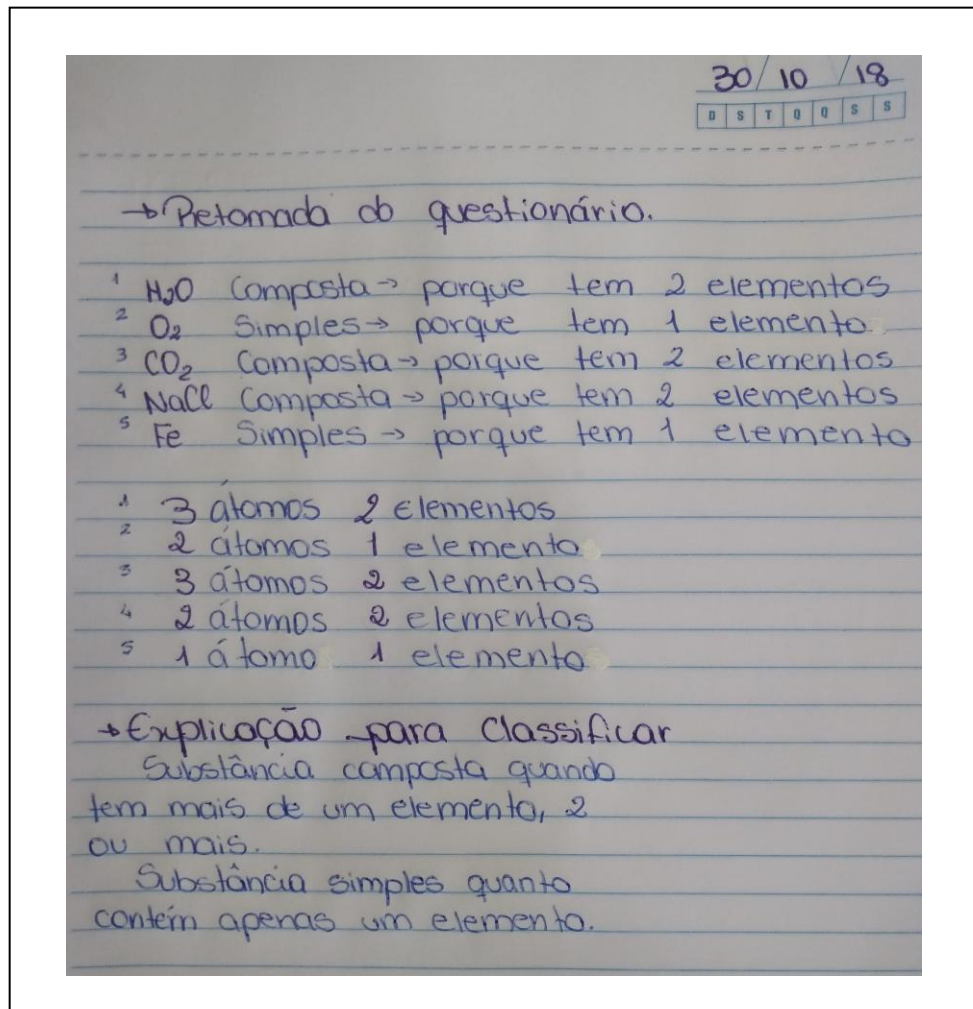 30/10/18
D S T Q Q S S
→ Retomada do questionário.
1 H2O Composta → porque tem 2 elementos
2 O2 Simples → porque tem 1 elemento
3 CO2 Composta → porque tem 2 elementos
4 NaCl Composta → porque tem 2 elementos
5 Fe Simples → porque tem 1 elemento
1 3 átomos 2 elementos
2 2 átomos 1 elemento
3 3 átomos 2 elementos
4 2 átomos 2 elementos
5 1 átomo 1 elemento
→ Explicação para Classificar
Substância composta quando
tem mais de um elemento, 2
ou mais.
Substância simples quanto
contém apenas um elemento.